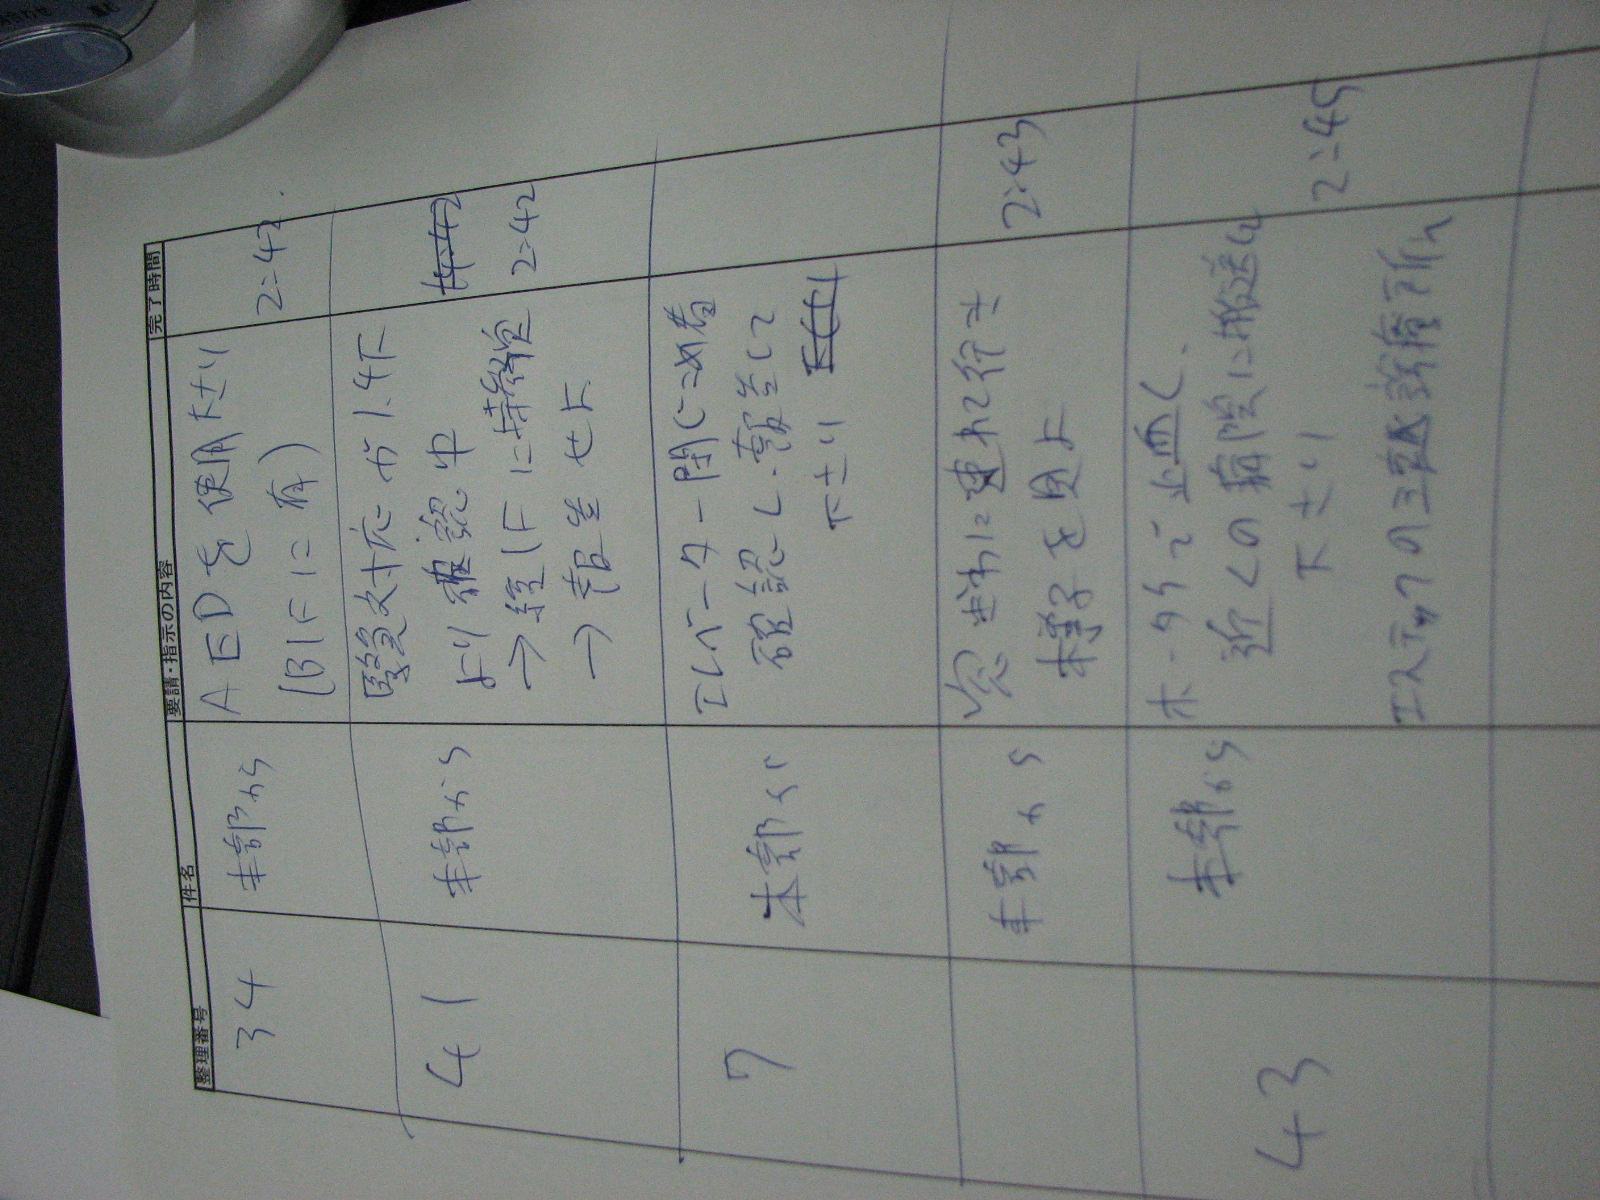 整理番号 件名 要請・指示の内容 完了時間
34 本部から AEDを使用下さい 2:42
(B1Fに有)
41 本部から 緊急対応が1.4F
より確認中 14:42
→ 1Fに待
→ 報告せよ 2:42
7 本部より エレベーター閉じこめ者
確認し、報告して
下さい
本部から 窓際に連れて行き 2:43
様子を見よ
43 本部から ホータイで止血し、
近くの病院に搬送して
下さい 2:45
エステックの三